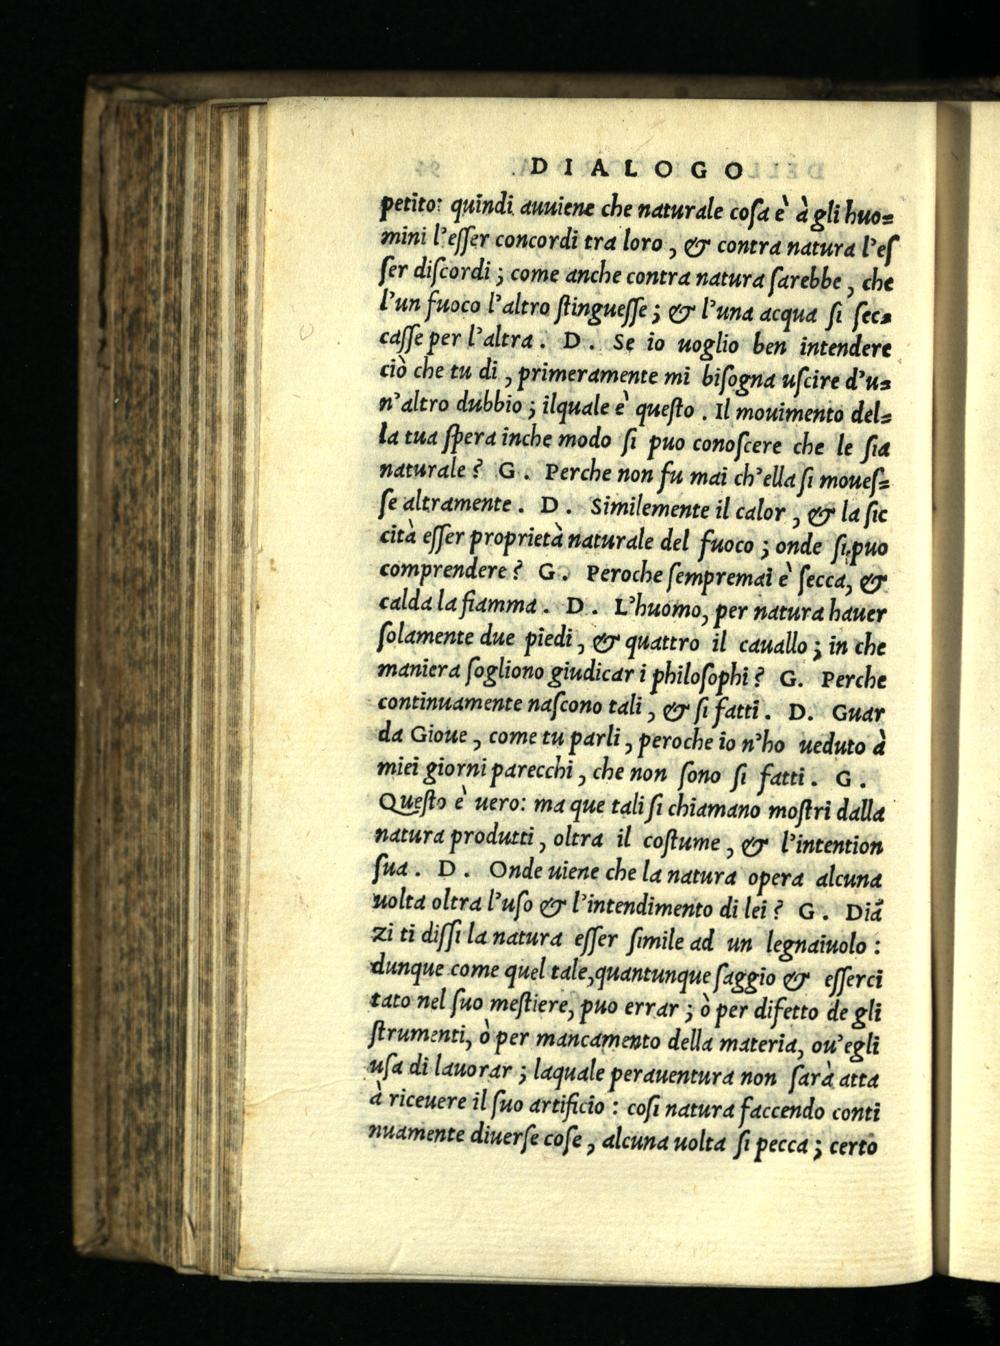 DIALOGO
petito: quindi auuiene che naturale coſa è à gli huo=
mini l'eſſer concordi tra loro, & contra natura l'eſ
ſer diſcordi; come anche contra natura ſarebbe, che
l'un fuoco l'altro ſtingueſſe; & l'una acqua ſi ſec=
caſſe per l'altra. D. Se io uoglio ben intendere
ciò che tu di, primeramente mi biſogna uſcire d'u=
n'altro dubbio; ilquale è queſto. Il mouimento del=
la tua ſpera inche modo ſi puo conoſcere che le ſia
naturale? G. Perche non fu mai ch'ella ſi moueſ=
ſe altramente. D. Similemente il calor, & la ſic
cità eſſer proprietà naturale del fuoco; onde ſi puo
comprendere? G. Peroche ſempremai è ſecca, &
calda la fiamma. D. L'huomo, per natura hauer
ſolamente due piedi, & quattro il cauallo; in che
maniera ſogliono giudicar i philoſophi? G. Perche
continuamente naſcono tali, & ſi fatti. D. Guar
da Gioue, come tu parli, peroche io n'ho ueduto à
miei giorni parecchi, che non ſono ſi fatti. G.
Queſto è uero: ma que tali ſi chiamano moſtri dalla
natura produtti, oltra il coſtume, & l'intention
ſua. D. Onde uiene che la natura opera alcuna
uolta oltra l'uſo & l'intendimento di lei? G. Diã
zi ti diſſi la natura eſſer ſimile ad un legnaiuolo:
dunque come quel tale, quantunque ſaggio & eſſerci
tato nel ſuo meſtiere, puo errar; ò per difetto de gli
ſtrumenti, ò per mancamento della materia, ou'egli
uſa di lauorar; laquale perauentura non ſarà atta
à riceuere il ſuo artificio: coſi natura faccendo conti
nuamente diuerſe coſe, alcuna uolta ſi pecca; certo